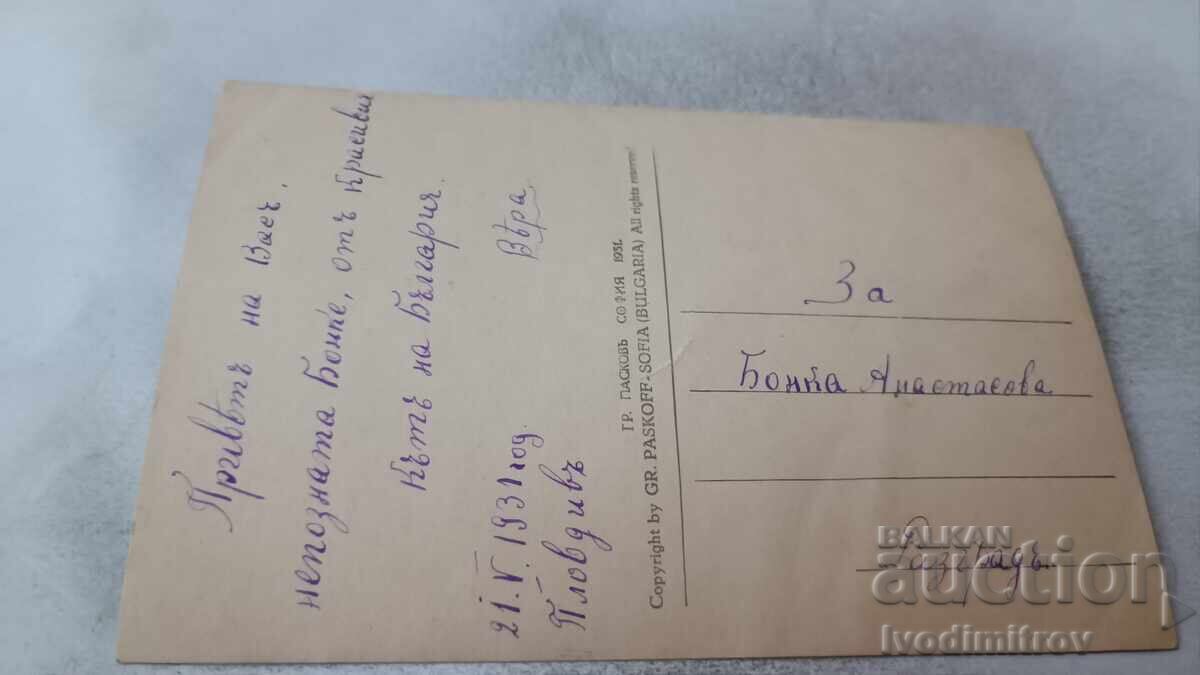 Привѣтъ на Васъ,
непозната Бонке, отъ красивия
кътъ на България.
Вѣра
21.V.1931 год.
Пловдивъ
ГР. ПАСКОВЪ СОФИЯ 1931.
Copyright by GR. PASKOFF-SOFIA (BULGARIA) All rights reserved
За
Бонка Анастасова
Разградъ
BALKAN
auction
Ivodimitrov